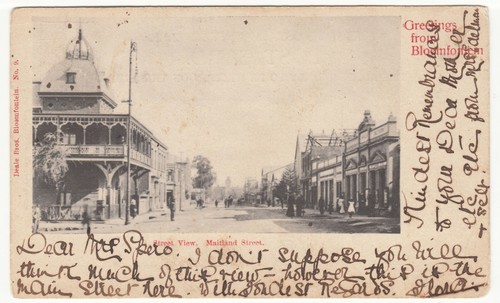 Greetings
from
Bloemfontein
Deale Bros. Bloemfontein. No. 9.
Street View, Maitland Street.
Kindest Remembrances
to your Dear Mother
etc etc from
& self.
Dear Mrs I don't suppose you will
think much of this view – however this is the
main street here. With fondest Regards.